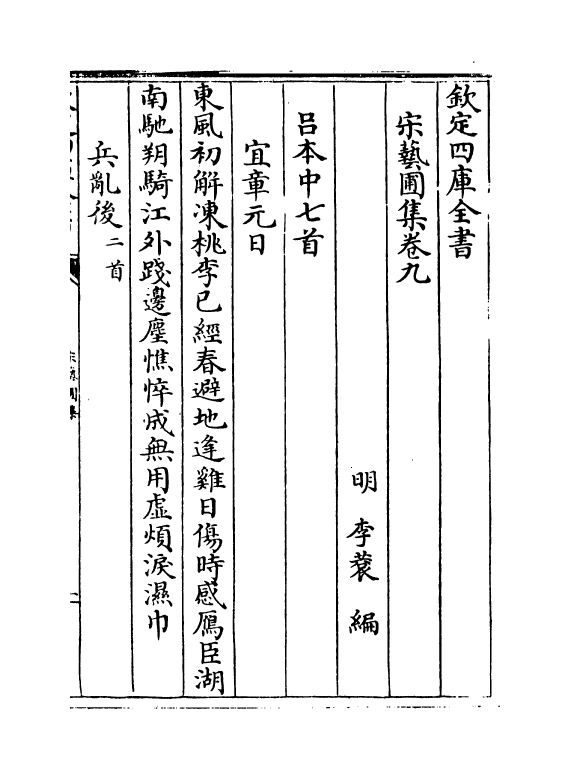 欽定四庫全書
宋藝圃集卷九
明 李蓘 編
呂本中七首
宜章元日
東風初解凍桃李已經春避地逢雞日傷時感鴈臣湖
南馳朔騎江外踐邊塵憔悴成無用虛煩淚濕巾
兵亂後二首